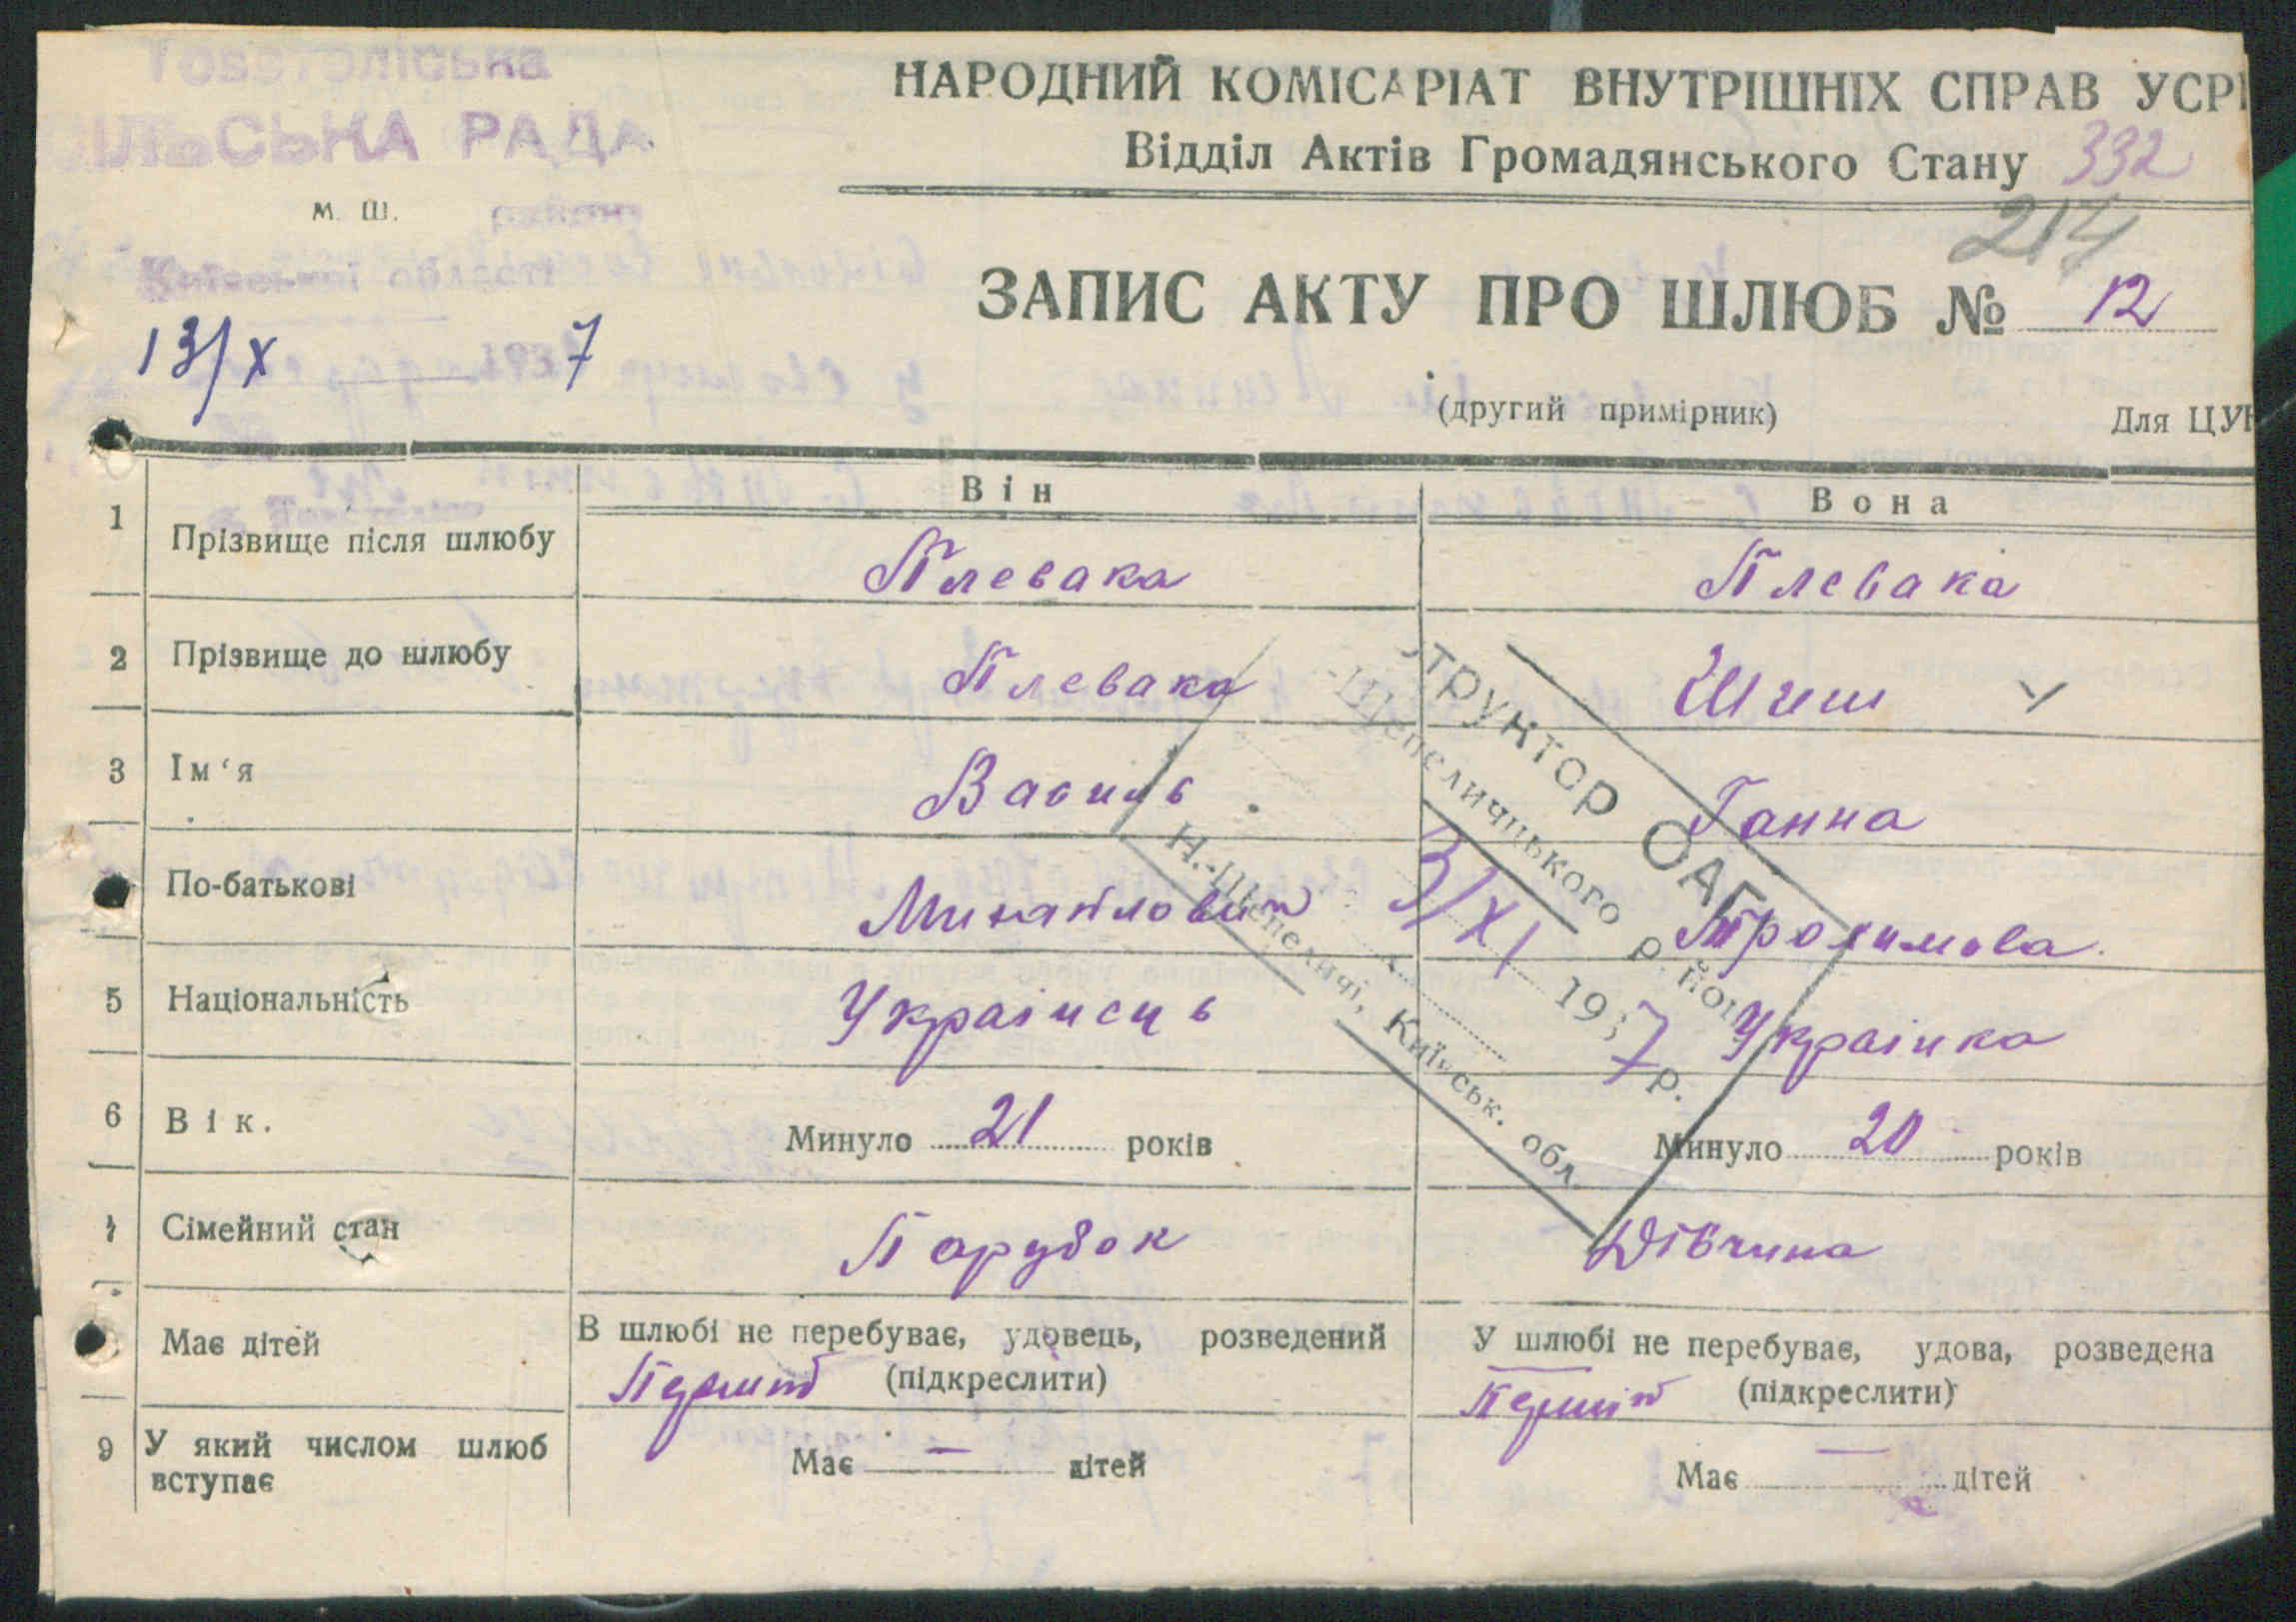 Товстоліська
ІЛЬСЬКА РАДА
м. Ш. району
Київської області
13/X 1937
НАРОДНИЙ КОМІСАРІАТ ВНУТРІШНІХ СПРАВ УСР
Відділ Актів Громадянського Стану 332
214
ЗАПИС АКТУ ПРО ШЛЮБ № 12
(другий примірник) Для ЦУН
Він Вона
1 Прізвище після шлюбу Плевака Плевака
2 Прізвище до шлюбу Плевака Шиш
3 Ім‘я Василь Ганна
По-батькові Михайлович Трохимова
5 Національність Українець Українка
6 Вік. Минуло 21 років Минуло 20 років
Сімейний стан Парубок Дівчина
Має дітей В шлюбі не перебуває, удовець, розведений У шлюбі не перебуває, удова, розведена
Перший (підкреслити) Перший (підкреслити)
9 У який числом шлюб вступає Має — дітей Має — дітей
структор ОАГ
Шепеличицького району
3/XI 1937 р.
Н.-Шепеличі, Київськ. обл.